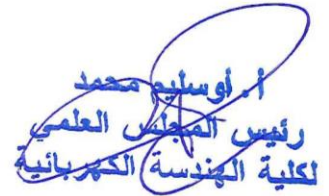 أ. أوسليم محمد
رئيس المجلس العلمي
لكلية الهندسة الكهربائية